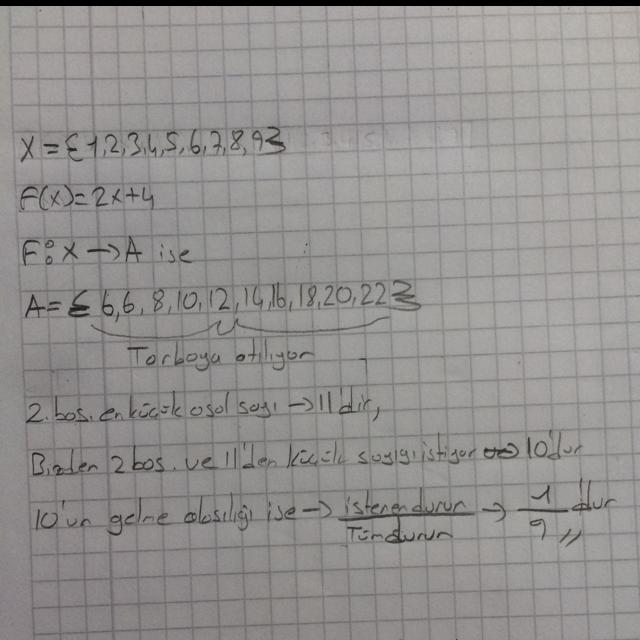 X = {1,2,3,4,5,6,7,8,9}
F(x)=2x+4
F: X → A ise
A = {6,6,8,10,12,14,16,18,20,22}
Torbaya atılıyor
2.bas. en küçük asal sayı → 11'dir,
Bizden 2 bas. ve 11'den küçük sayıyı istiyor → 10'dur
10'un gelme olasılığı ise → istenendurum / Tümdurum → 1/9 'dur